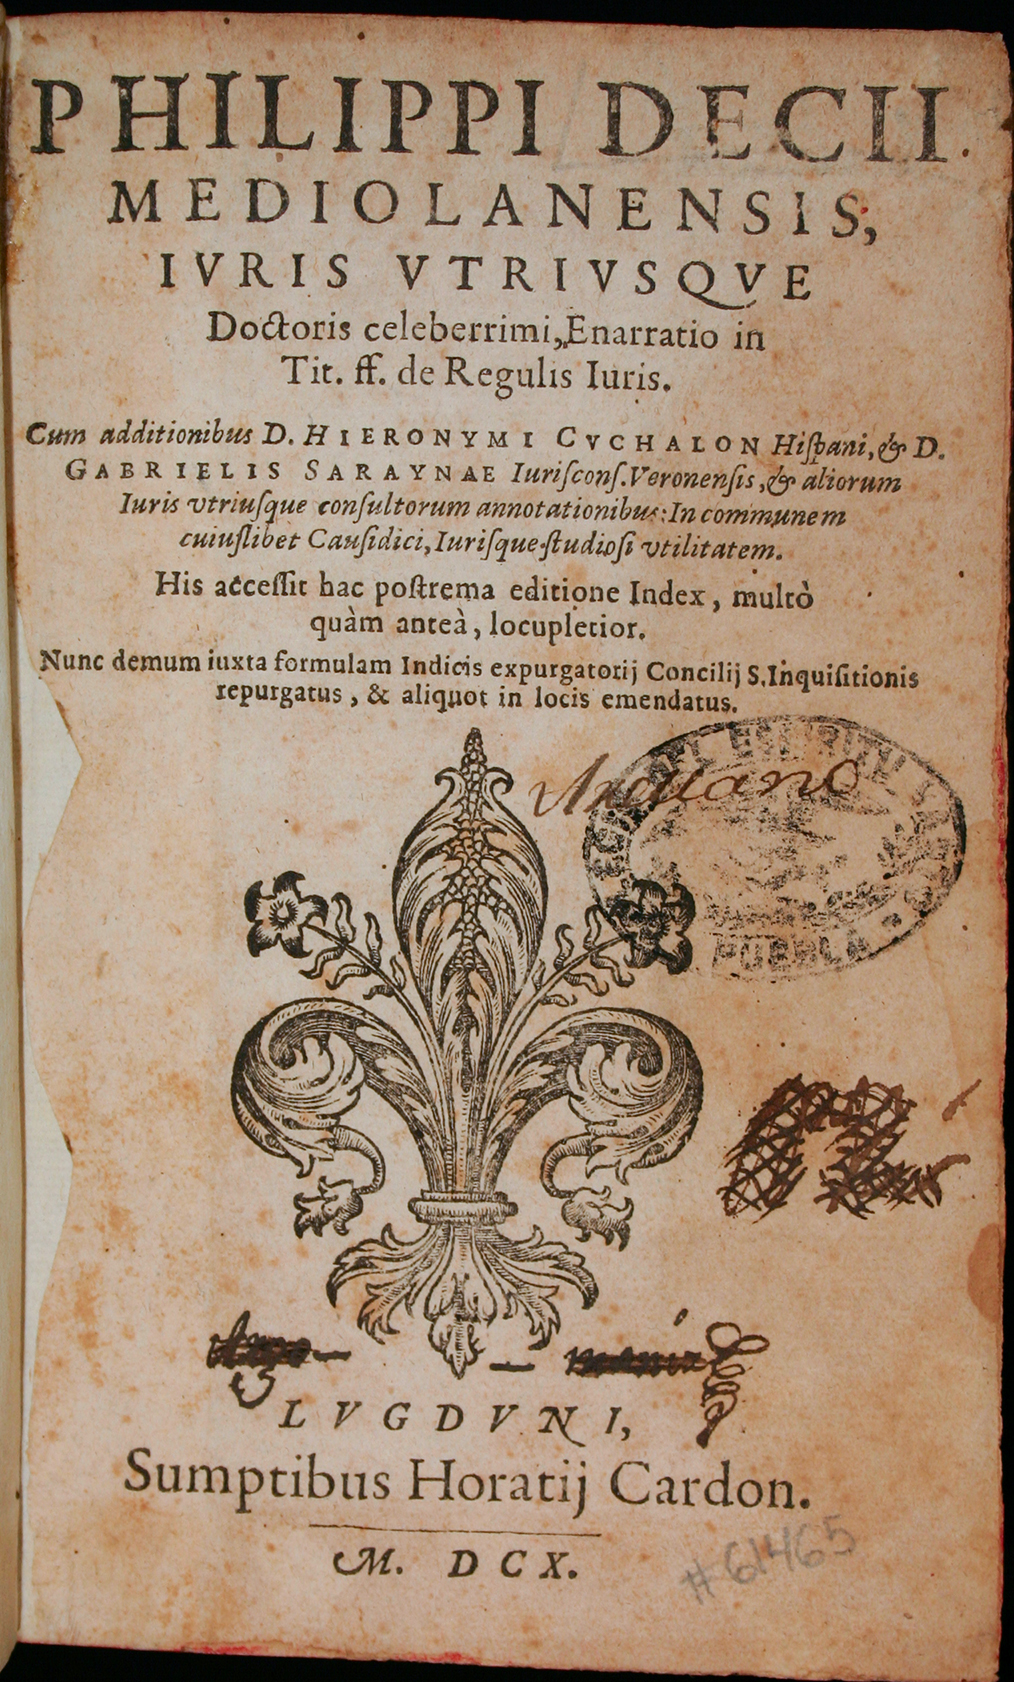 PHILIPPI DECII.
MEDIOLANENSIS,
IVRIS VTRIVSQVE
Doctoris celeberrimi, Enarratio in
Tit. ff. de Regulis Iuris.
Cum additionibus D. HIERONYMI CVCHALON Hiſpani, & D.
GABRIELIS SARAYNAE Iuriſconſ. Veronenſis, & aliorum
Iuris vtriuſque conſultorum annotationibus: In communem
cuiuſlibet Cauſidici, Iuriſque ſtudioſi vtilitatem.
His acceſſit hac poſtrema editione Index, multò
quàm anteà, locupletior.
Nunc demum iuxta formulam Indicis expurgatorij Concilij S. Inquiſitionis
repurgatus, & aliquot in locis emendatus.
DEL ESPIRITU
PUEBLA
LVGDVNI,
Sumptibus Horatij Cardon.
M. DCX.
#61465